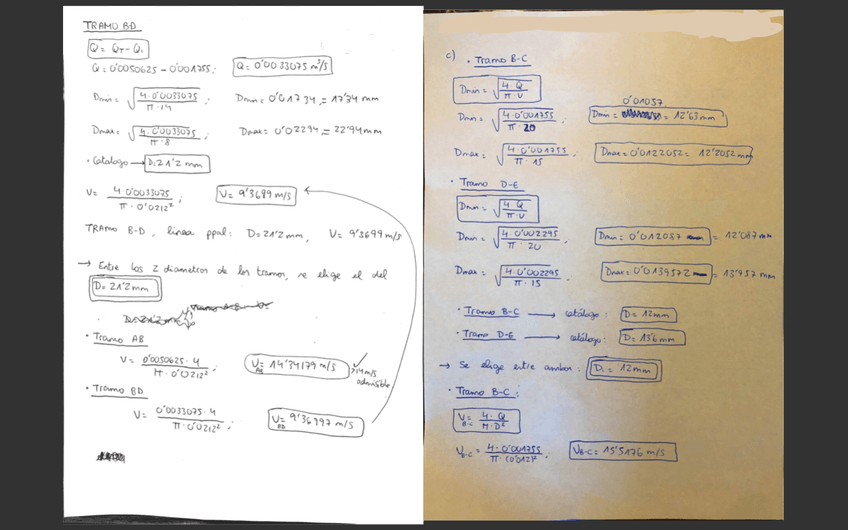 TRAMO BD
Q = QT - Q1
Q = 0'0050625 - 0'001755; Q = 0'0033075 m³/s
Dmin = √(4·0'0033075 / π·14); Dmin = 0'01734 = 17'34 mm
Dmax = √(4·0'0033075 / π·8); Dmax = 0'02294 = 22'94 mm
· Catálogo → D = 21'2 mm
V = 4·0'0033075 / π·0'0212²; V = 9'3699 m/s
TRAMO B-D, línea ppal: D = 21'2 mm, V = 9'3699 m/s
→ Entre los 2 diametros de los tramos, se elige el del
D = 21'2 mm
· Tramo AB
V = 0'0050625·4 / π·0'0212²; VAB = 14'34179 m/s ✓ >14 m/s admisible
· Tramo BD
V = 0'0033075·4 / π·0'0212²; VBD = 9'36997 m/s
c) · Tramo B-C
Dmin = √(4·Q / π·v)
0'01057
Dmin = √(4·0'001755 / π·20); Dmin = = 12'63 mm
Dmax = √(4·0'001755 / π·15); Dmax = 0'0122052 = 12'2052 mm
· Tramo D-E
Dmin = √(4·Q / π·v)
Dmin = √(4·0'002295 / π·20); Dmin = 0'012087 = 12'087 mm
Dmax = √(4·0'002295 / π·15); Dmax = 0'0139572 = 13'957 mm
· Tramo B-C → catálogo: D = 12 mm
· Tramo D-E → catálogo: D = 13'6 mm
→ Se elige entre ambos: D = 12 mm
· Tramo B-C:
VB-C = 4·Q / π·D²
VB-C = 4·0'001755 / π·(0'012)²; VB-C = 15'5176 m/s